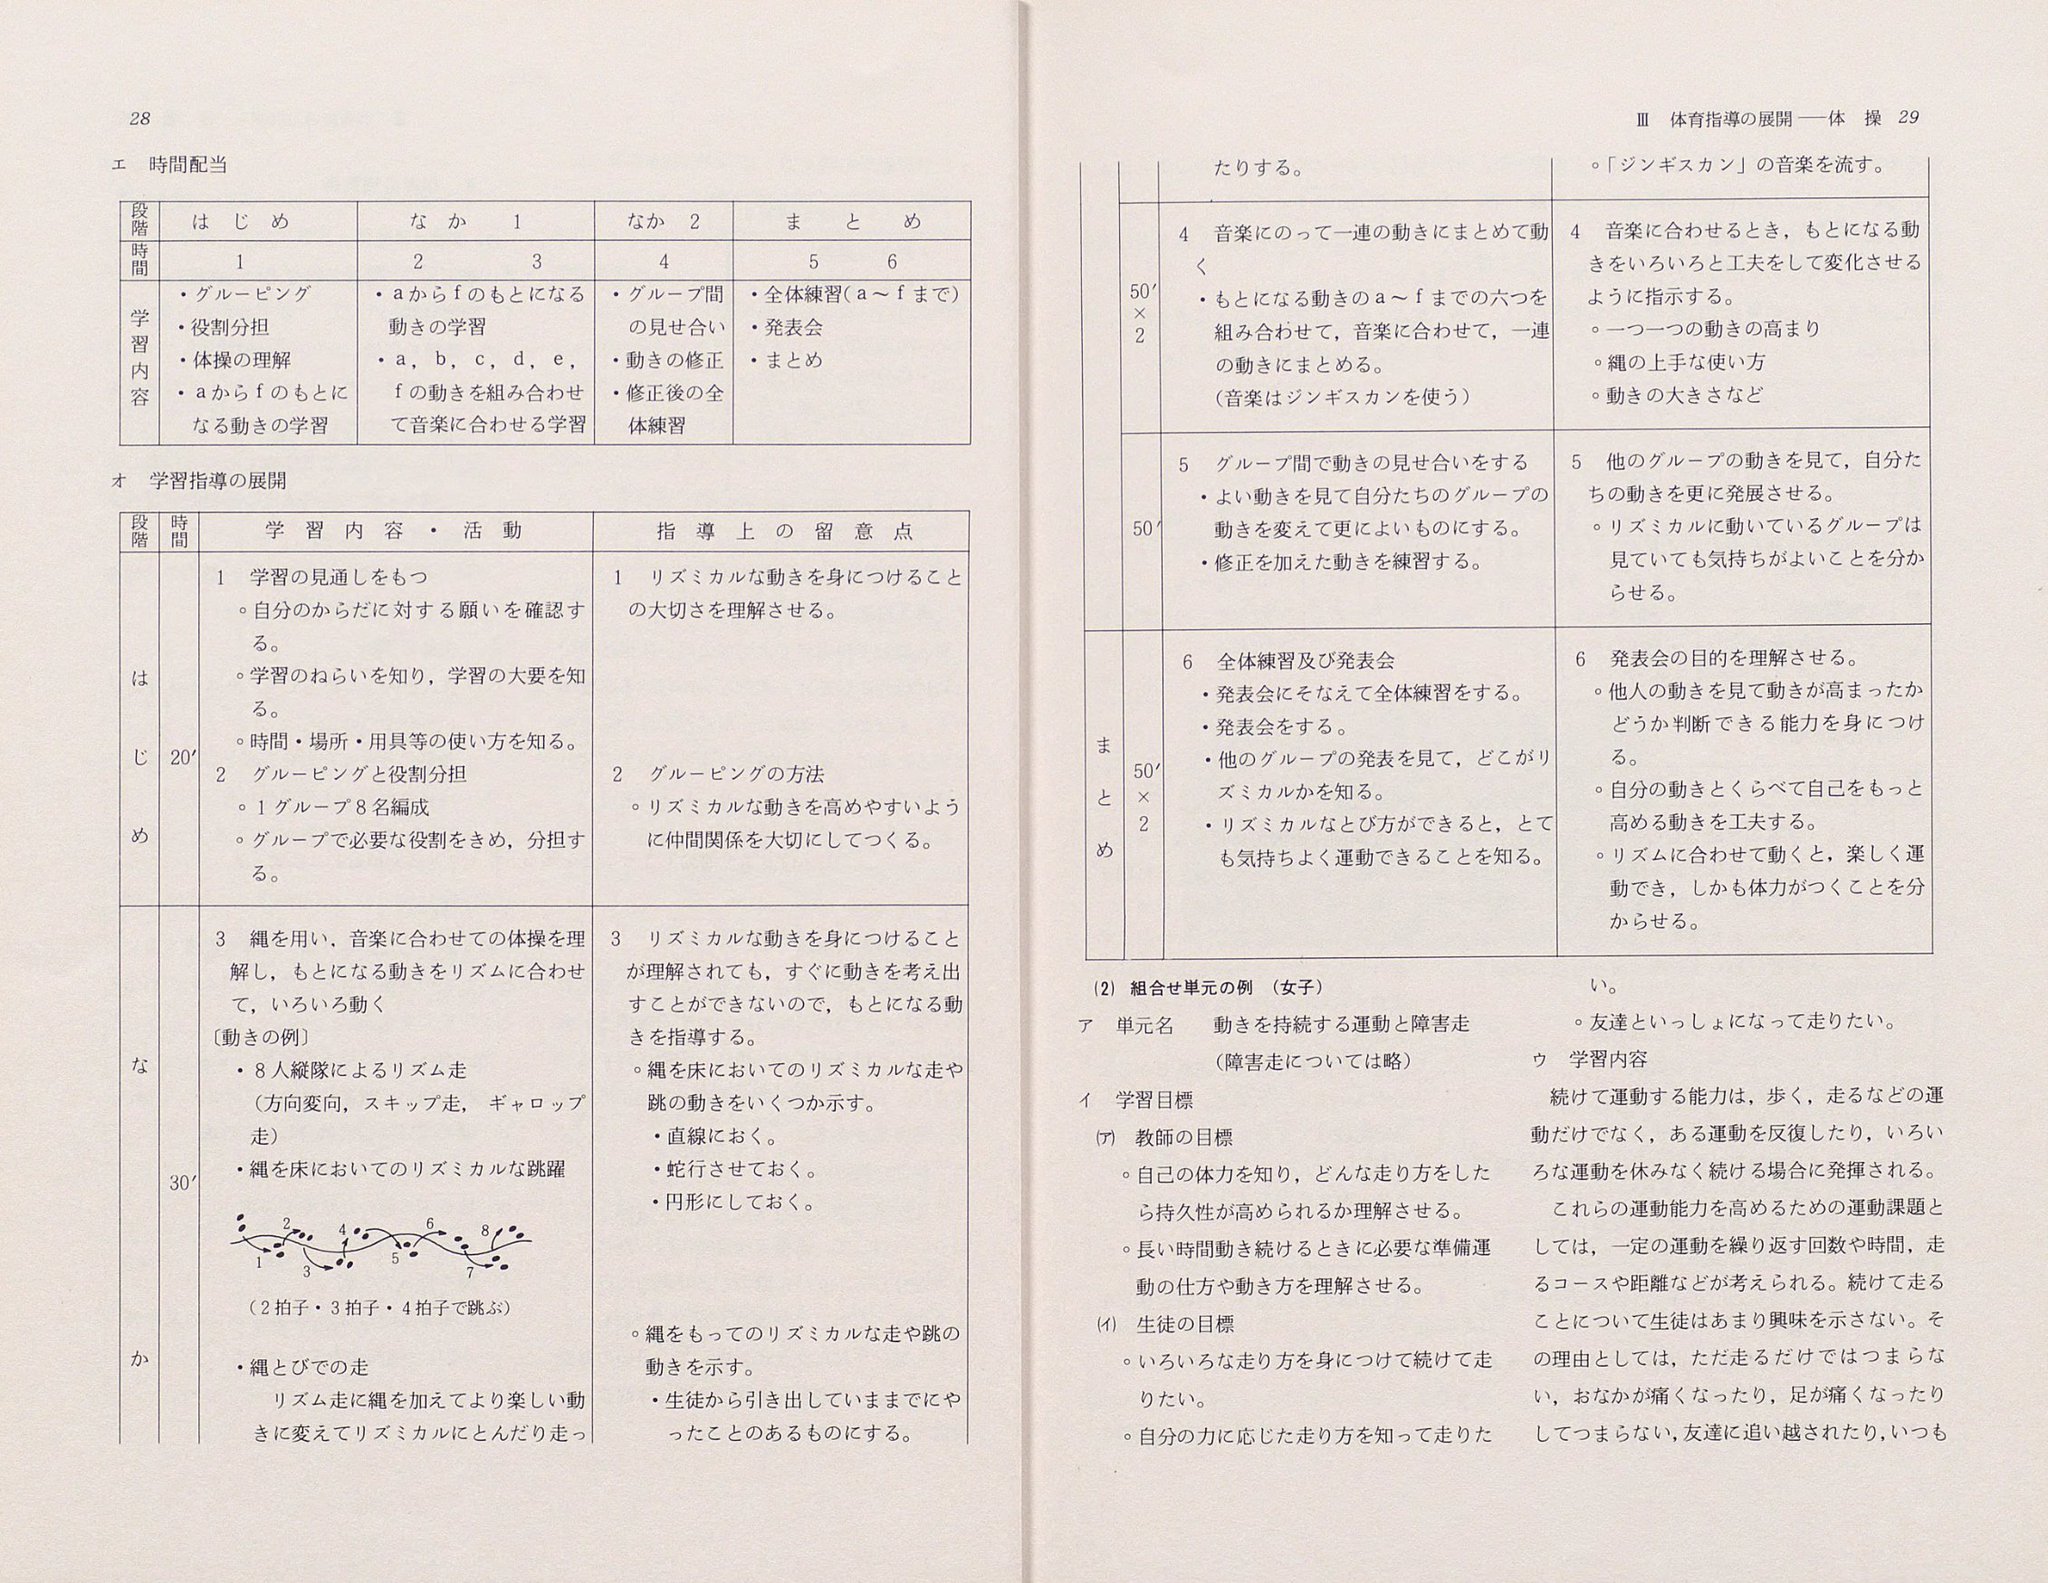 28
エ　時間配当
段階　はじめ　なか　1　なか　2　まとめ
時間　1　2　3　4　5　6
学習内容
・グルーピング
・役割分担
・体操の理解
・aからfのもとに
なる動きの学習
・aからfのもとになる
動きの学習
・a，b，c，d，e，
fの動きを組み合わせ
て音楽に合わせる学習
・グループ間
の見せ合い
・動きの修正
・修正後の全
体練習
・全体練習(a〜fまで)
・発表会
・まとめ
オ　学習指導の展開
段階　時間　学習内容・活動　指導上の留意点
はじめ
20′
1　学習の見通しをもつ
○自分のからだに対する願いを確認す
る。
○学習のねらいを知り，学習の大要を知
る。
○時間・場所・用具等の使い方を知る。
2　グルーピングと役割分担
○1グループ8名編成
○グループで必要な役割をきめ，分担す
る。
1　リズミカルな動きを身につけること
の大切さを理解させる。
2　グルーピングの方法
○リズミカルな動きを高めやすいよう
に仲間関係を大切にしてつくる。
なか
30′
3　縄を用い，音楽に合わせての体操を理
解し，もとになる動きをリズムに合わせ
て，いろいろ動く
〔動きの例〕
・8人縦隊によるリズム走
（方向変向，スキップ走，ギャロップ
走）
・縄を床においてのリズミカルな跳躍
1 2 3 4 5 6 7 8
（2拍子・3拍子・4拍子で跳ぶ）
・縄とびでの走
リズム走に縄を加えてより楽しい動
きに変えてリズミカルにとんだり走っ
3　リズミカルな動きを身につけること
が理解されても，すぐに動きを考え出
すことができないので，もとになる動
きを指導する。
○縄を床においてのリズミカルな走や
跳の動きをいくつか示す。
・直線におく。
・蛇行させておく。
・円形にしておく。
○縄をもってのリズミカルな走や跳の
動きを示す。
・生徒から引き出していままでにや
ったことのあるものにする。
Ⅲ　体育指導の展開――体　操　29
たりする。
○「ジンギスカン」の音楽を流す。
50′
×
2
4　音楽にのって一連の動きにまとめて動
く
・もとになる動きのa〜fまでの六つを
組み合わせて，音楽に合わせて，一連
の動きにまとめる。
（音楽はジンギスカンを使う）
4　音楽に合わせるとき，もとになる動
きをいろいろと工夫をして変化させる
ように指示する。
○一つ一つの動きの高まり
○縄の上手な使い方
○動きの大きさなど
50′
5　グループ間で動きの見せ合いをする
・よい動きを見て自分たちのグループの
動きを変えて更によいものにする。
・修正を加えた動きを練習する。
5　他のグループの動きを見て，自分た
ちの動きを更に発展させる。
○リズミカルに動いているグループは
見ていても気持ちがよいことを分か
らせる。
まとめ
50′
×
2
6　全体練習及び発表会
・発表会にそなえて全体練習をする。
・発表会をする。
・他のグループの発表を見て，どこがリ
ズミカルかを知る。
・リズミカルなとび方ができると，とて
も気持ちよく運動できることを知る。
6　発表会の目的を理解させる。
○他人の動きを見て動きが高まったか
どうか判断できる能力を身につけ
る。
○自分の動きとくらべて自己をもっと
高める動きを工夫する。
○リズムに合わせて動くと，楽しく運
動でき，しかも体力がつくことを分
からせる。
(2)　組合せ単元の例　（女子）
ア　単元名　動きを持続する運動と障害走
（障害走については略）
イ　学習目標
(ア)　教師の目標
○自己の体力を知り，どんな走り方をした
ら持久性が高められるか理解させる。
○長い時間動き続けるときに必要な準備運
動の仕方や動き方を理解させる。
(イ)　生徒の目標
○いろいろな走り方を身につけて続けて走
りたい。
○自分の力に応じた走り方を知って走りた
い。
○友達といっしょになって走りたい。
ウ　学習内容
続けて運動する能力は，歩く，走るなどの運
動だけでなく，ある運動を反復したり，いろい
ろな運動を休みなく続ける場合に発揮される。
これらの運動能力を高めるための運動課題と
しては，一定の運動を繰り返す回数や時間，走
るコースや距離などが考えられる。続けて走る
ことについて生徒はあまり興味を示さない。そ
の理由としては，ただ走るだけではつまらな
い，おなかが痛くなったり，足が痛くなったり
してつまらない，友達に追い越されたり，いつも